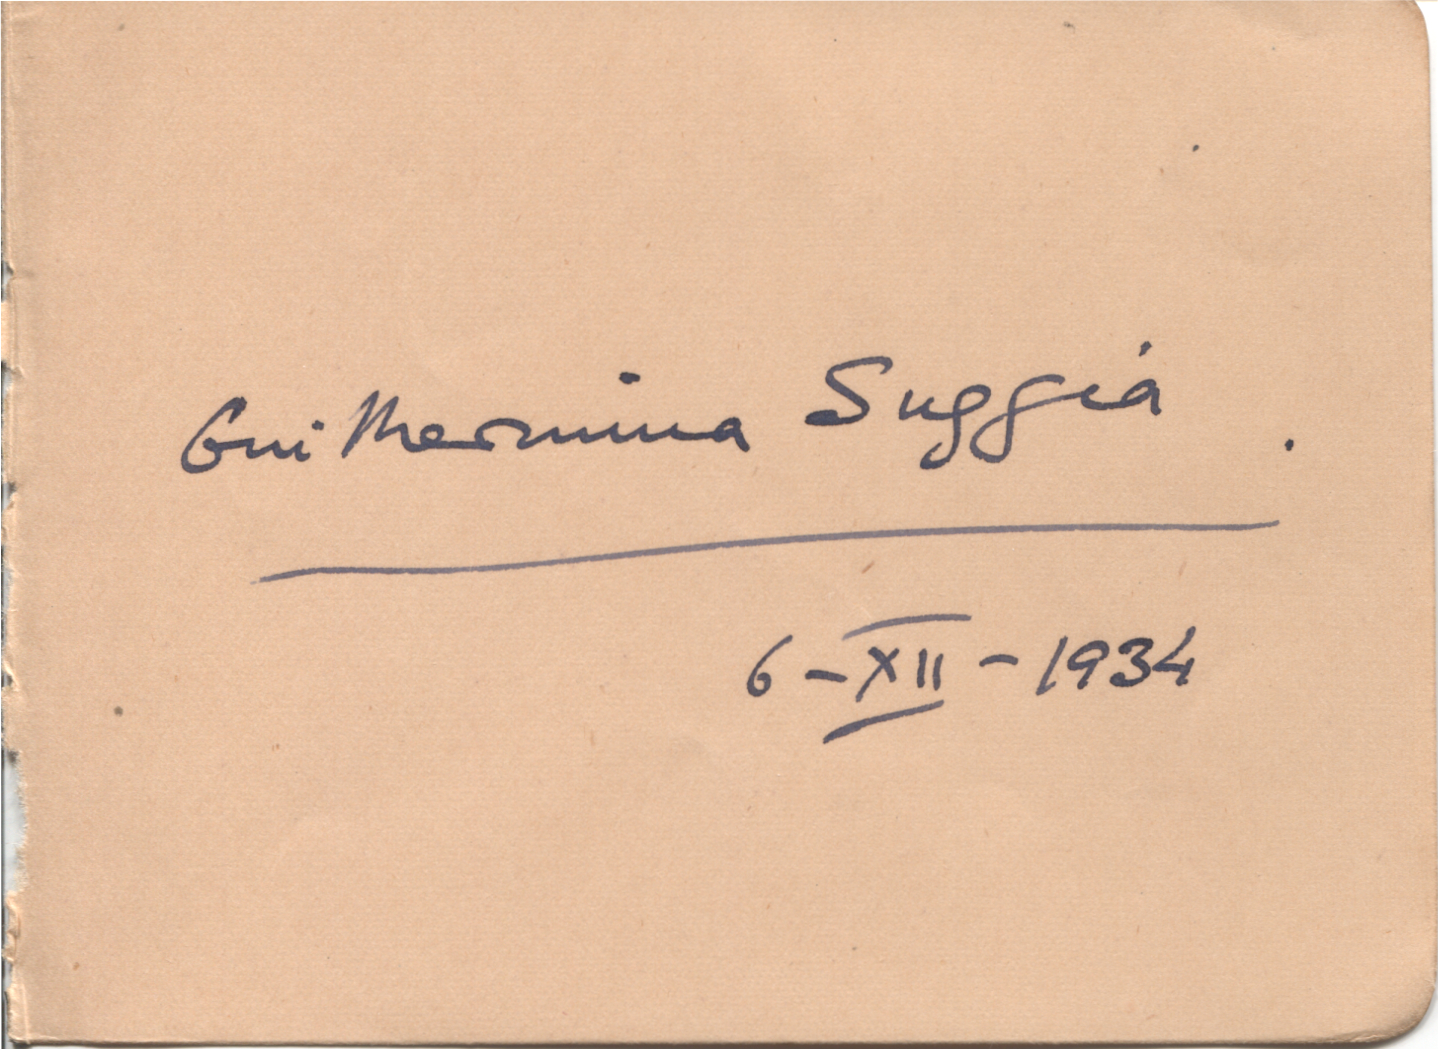 Guilhermina Suggia.
6-XII-1934